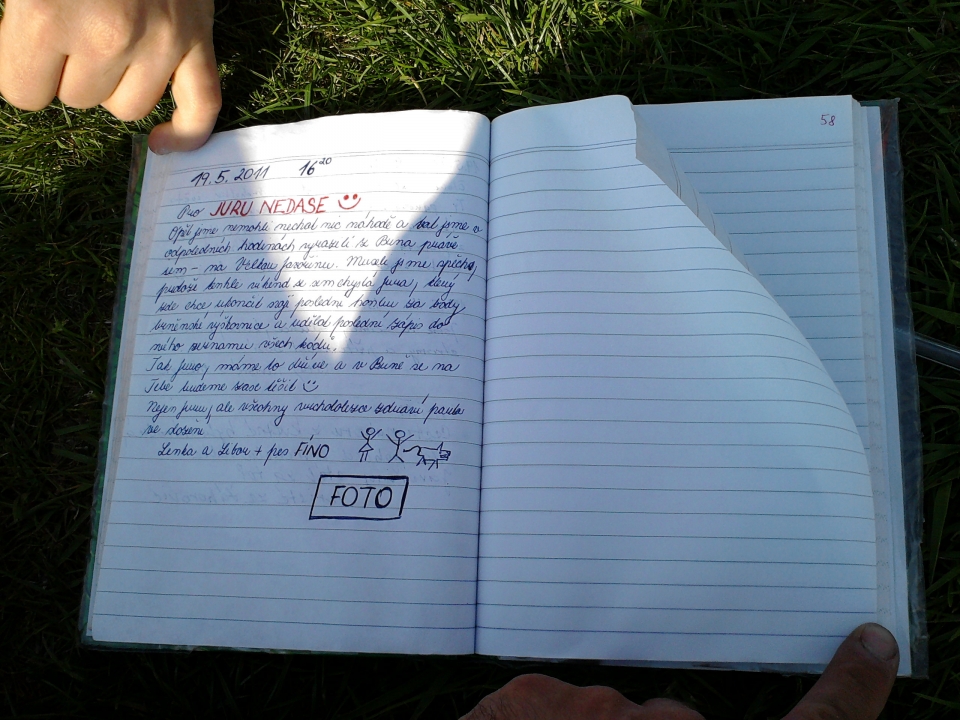 19.5.2011 16²⁰
Pro JURU NEDASE
Opět jsme nemohli nechat nic náhodě a tak jsme v
odpoledních hodinách vyrazili z Brna právě
sem – na Velkou Javořinu. Museli jsme spěchat,
protože tenhle víkend se sem chystá Jura, který
zde chce ukončit svoji poslední honbu za body
brněnské výškovnice a udělat poslední zápis do
svého seznamu všech bodů.
Tak Juro, máme to dříve a v Brně se na
Tebe budeme zase těšit
Nejen Juru, ale všechny vrchololezce zdraví parta
ve složení
Lenka a Libor + pes FÍNO
FOTO
58